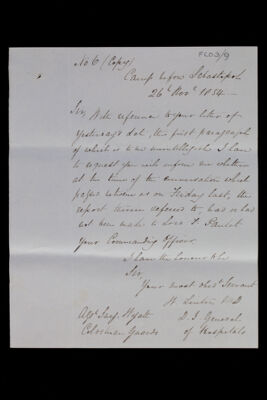 No 6 (Copy)
FCO3/9
Camp before Sebastopol
26th Novr 1854
Sir, With reference to your letter of
yesterday's date, the first paragraph
of which is to me unintelligible I have
to request you will inform me whether
at the time of the conversation which
passed between us on Friday last, the
report therein referred to, had or had
not been made to Lord F. Paulet
your Commanding Officer.
I have the honour &c
Sir,
Your most obedt Servant
W. Linton M.D
D. I. General
of Hospitals
Asst Surg. Wyatt
Coldstream Guards